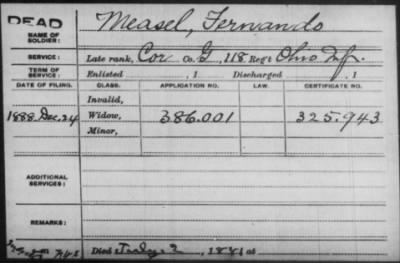 DEAD
Measel, Fernando
NAME OF SOLDIER:
SERVICE: Late rank, Cor Co. G, 118 Regt Ohio Inf.
TERM OF SERVICE: Enlisted , 1 Discharged , 1
DATE OF FILING. CLASS. APPLICATION NO. LAW. CERTIFICATE NO.
Invalid,
1888. Dec. 24 Widow, 386.001 325.943
Minor,
ADDITIONAL SERVICES:
REMARKS:
Died July 2, 1881 at